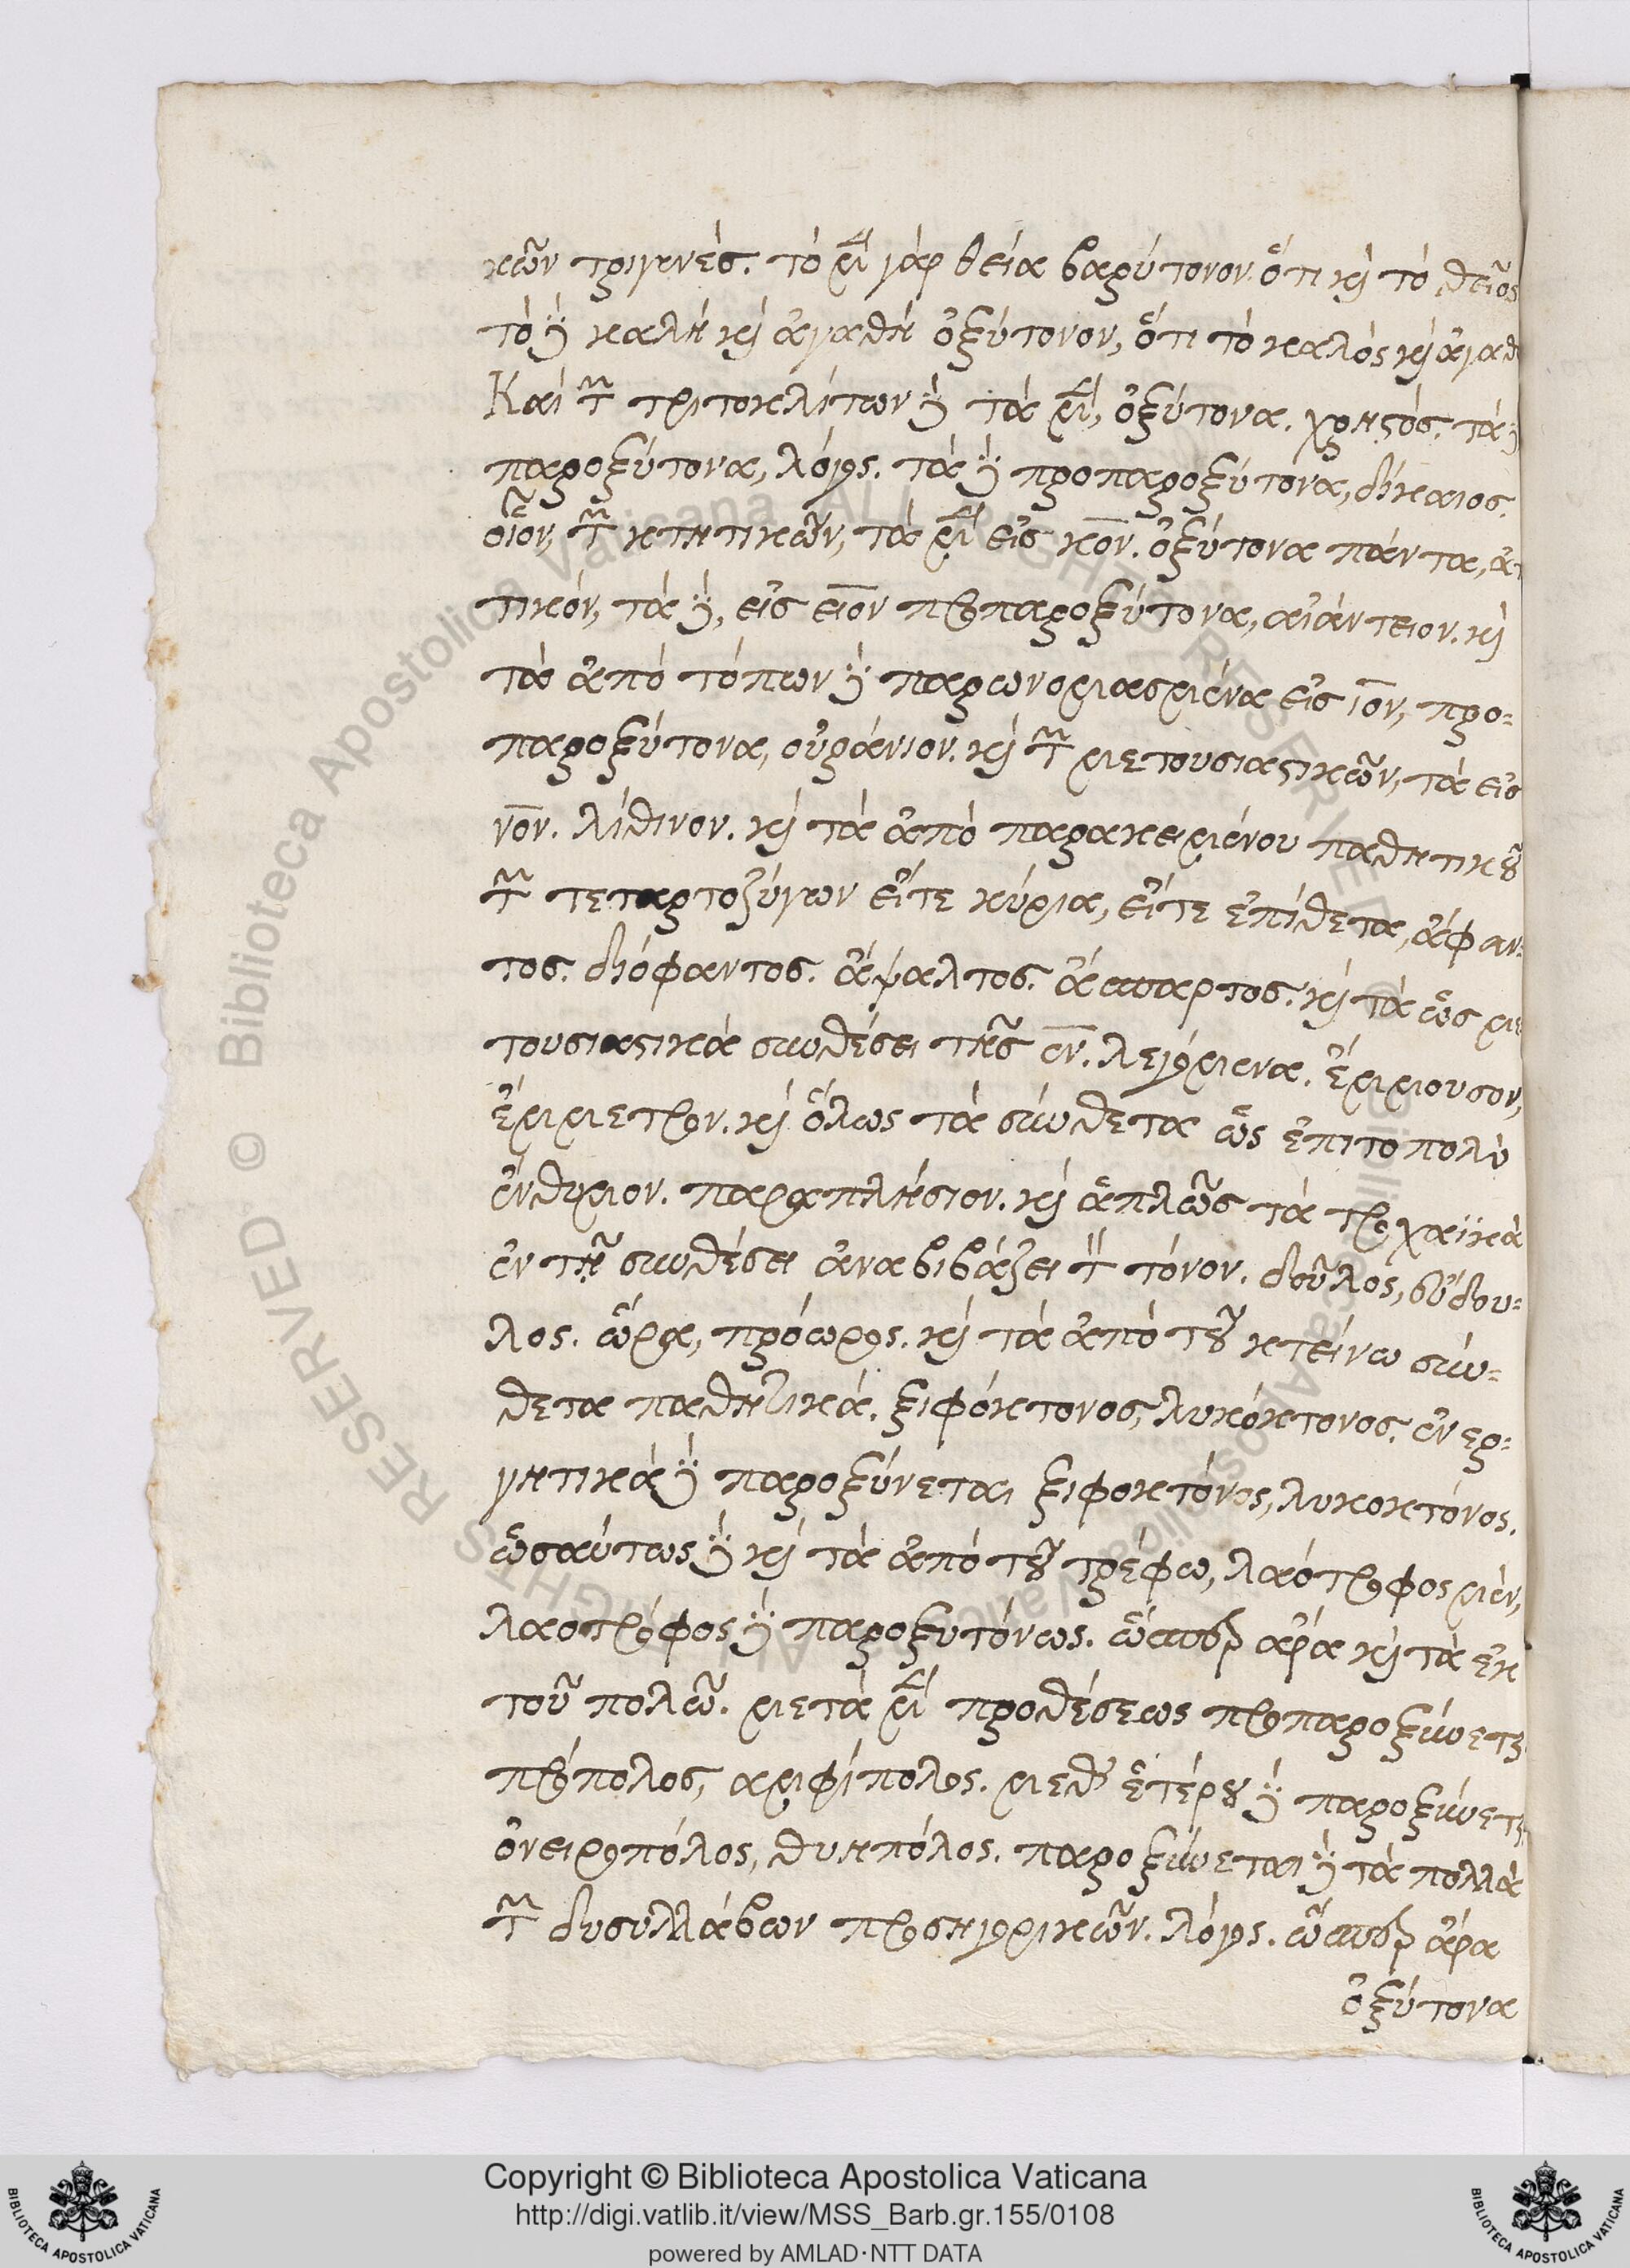 κῶν τριγενές. τὸ μὲν γάρ θεία βαρύτονον. ὅτι καὶ τὸ θεῖος
τὸ δὲ καλὴ καὶ ἀγαθὴ ὀξύτονον, ὅτι τὸ καλὸς καὶ ἀγαθ
Καὶ τῶν τριτοκλίτων δὲ τὰ μὲν, ὀξύτονα. χρηστός. τὰ δὲ
παροξύτονα, λόγος. τὰ δὲ προπαροξύτονα, δίκαιος.
οἷον, τῶν κτητικῶν, τὰ μὲν εἰς κον. ὀξύτονα πάντα, ἀτ
τικόν, τὰ δὲ, εἰς ειον προπαροξύτονα, αἰάντειον. καὶ
τὰ ἀπὸ τόπων δὲ παρωνομασμένα εἰς ιον, προ-
παροξύτονα, οὐράνιον. καὶ τῶν μετουσιαστικῶν, τὰ εἰς
νον. λίθινον. καὶ τὰ ἀπὸ παρακειμένου παθητικοῦ
τῶν τεταρτοζύγων εἴτε κύρια, εἴτε ἐπίθετα, ἄφαν-
τος. διόφαντος. ἄψαλτος. ἄσπαρτος. καὶ τὰ ὡς με
τουσιαστικὰ συνθέσει τῆς εν. λεγόμενα. ἔμμουσον,
ἔμμετρον. καὶ ὅλως τὰ σύνθετα ὡς ἐπιτοπολὺ
ἐνθύμιον. παραπλήσιον. καὶ ἁπλῶς τὰ τροχαϊκὰ
ἐν τῇ συνθέσει ἀναβιβάζει τὸν τόνον. δοῦλος, εὔδου-
λος. ὥρα, πρόωρος. καὶ τὰ ἀπὸ τοῦ κτείνω σύν-
θετα παθητικά. ξιφόκτονος, λυκόκτονος. ἐνερ-
γητικὰ δὲ παροξύνεται ξιφοκτόνος, λυκοκτόνος.
ὡσαύτως δὲ καὶ τὰ ἀπὸ τοῦ τρέφω, λαότροφος μὲν,
λαοτρόφος δὲ παροξυτόνως. ὥσπερ ἄρα καὶ τὰ ἐκ
τοῦ πολῶ. μετὰ μὲν προθέσεως προπαροξύνεται
πρόπολος, ἀμφίπολος. μεθ' ἑτέρου δὲ παροξύνεται
ὀνειροπόλος, θυηπόλος. παροξύνεται δὲ τὰ πολλὰ
τῶν δυσυλλάβων προσηγορικῶν. λόγος. ὥσπερ ἄρα
ὀξύτονα
Copyright © Biblioteca Apostolica Vaticana
http://digi.vatlib.it/view/MSS_Barb.gr.155/0108
powered by AMLAD·NTT DATA